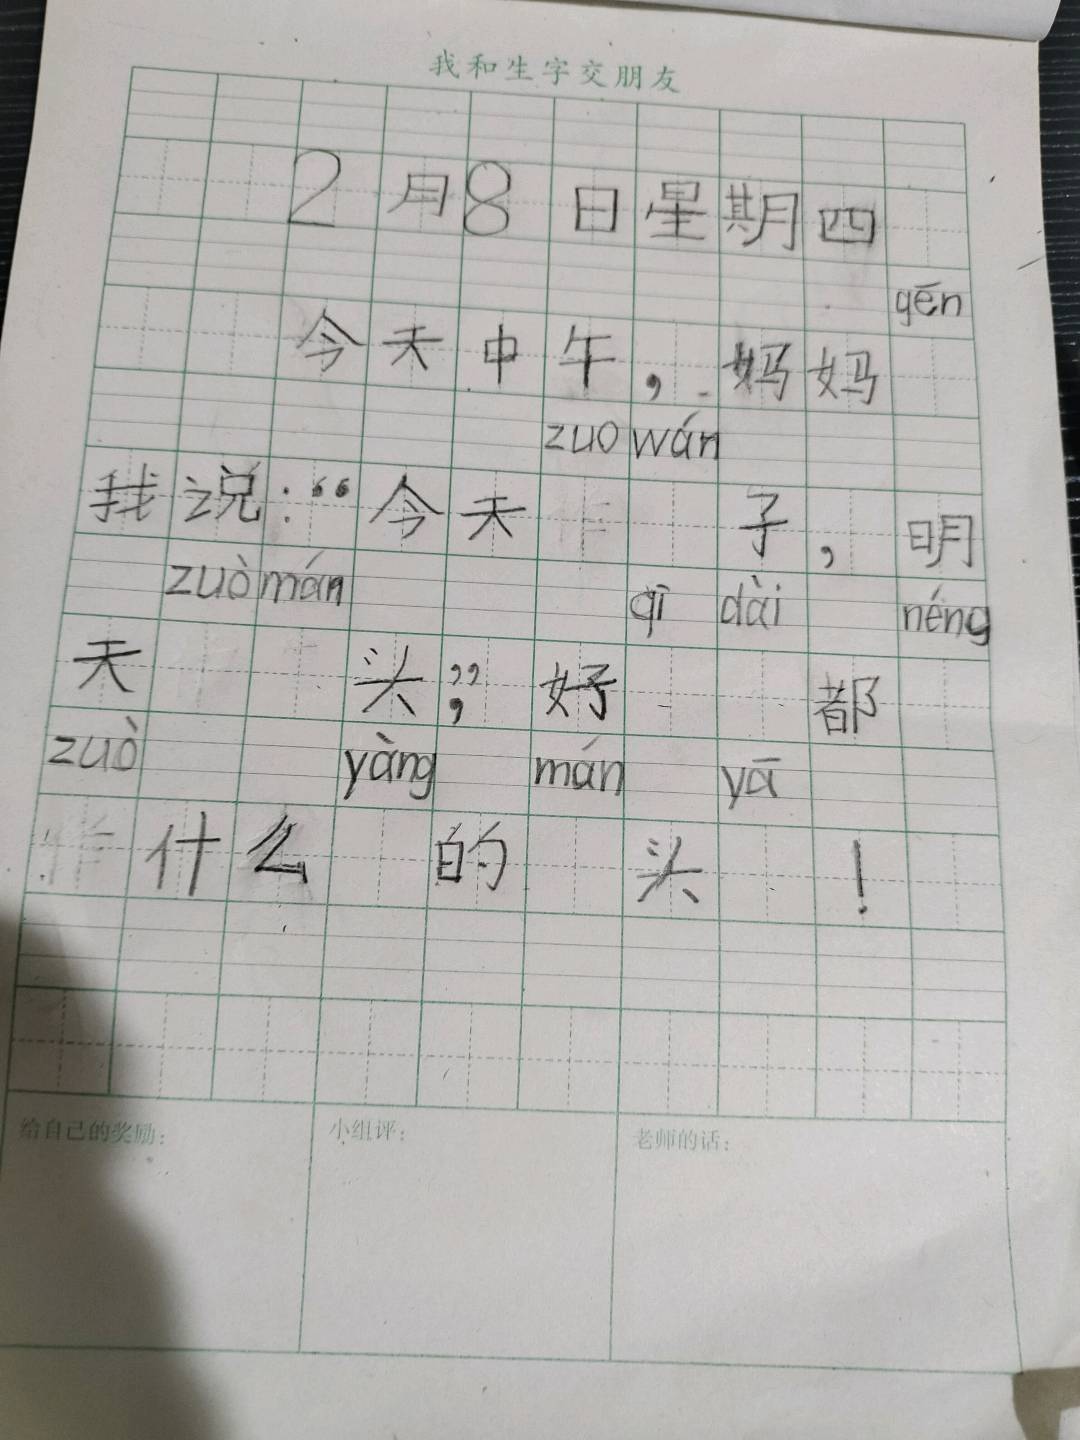 我和生字交朋友
2月8日星期四
gēn
今天中午，妈妈
zuo wán
我说：“今天 子，明
zuò mán qī dài néng
天 头”；好 都
zuò yàng mán yā
什么 的 头 ！
给自己的奖励： 小组评： 老师的话：